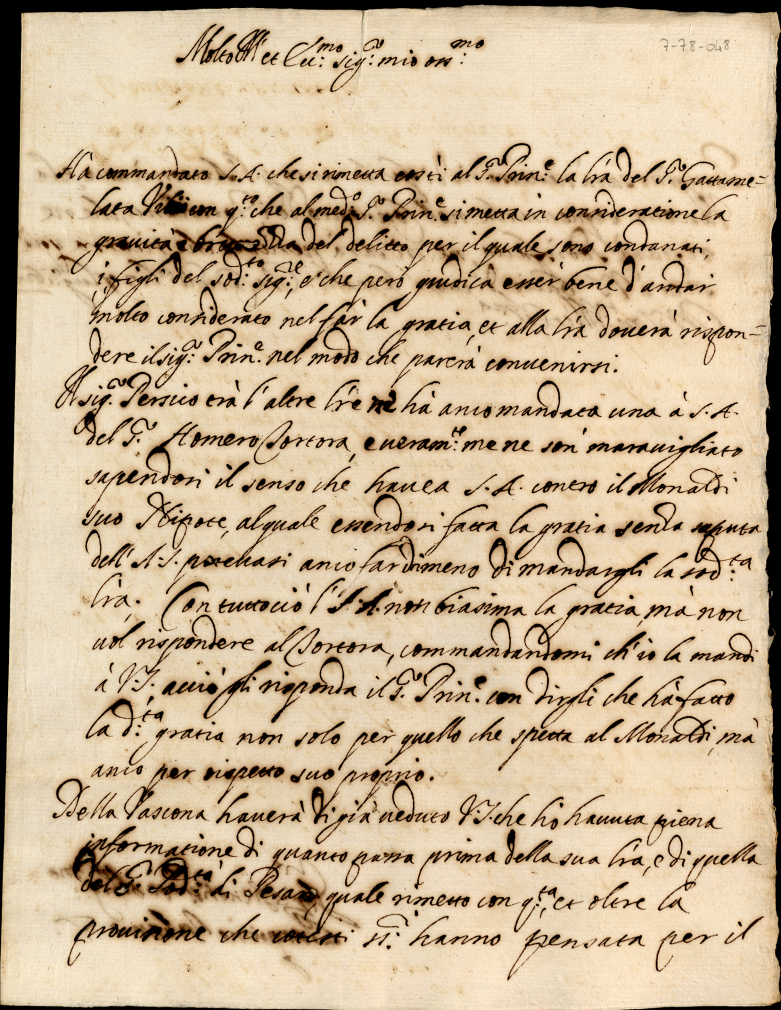 7-78-048
Molto Ill.re et Ecc.mo sig.r mio oss.mo
Hà commandato S.A. che si rimetta costì al S.r Prin.e la lr̃a del S.r Gattame=
lata con q.ta che al med.o S.r Prin.e si metta in consideratione la
gravità del delitto per il quale sono condanati,
i figli del sod.to sig.re, e che però giudica esser bene d'andar
molto considerato nel far la gratia, et alla lr̃a doverà rispon=
dere il sig.r Prin.e nel modo che parerà convenirsi.
Il sig.r Persio trà l'altre lr̃e nè hà anco mandata una à S.A.
del S.r Homero Tortora, e veram.te me ne son maravigliato
sapendosi il senso che havea S.A. contro il Monaldi
suo Nipote, al quale essendosi fatta la gratia senza saputa
dell'A.S. potevasi anco far dimeno di mandargli la sod.ta
lr̃a. Con tuttociò l'A.S. non biasima la gratia, mà non
vol rispondere al Tortora, commandandomi ch'io la mandi
à V.S. acciò gli risponda il S.r Prin.e con dirgli che hà fatto
la d.ta gratia non solo per quello che spetta al Monaldi, mà
anco per rispetto suo proprio.
Della Vascona haverà di già veduto V.S. che hò havuta piena
informatione di quanto passa prima della sua lr̃a, e di quella
del S.r Pod.tà di Pesaro, quale rimetto con q.ta, et oltre la
provisione che cotesti ss.ri hanno pensata per il